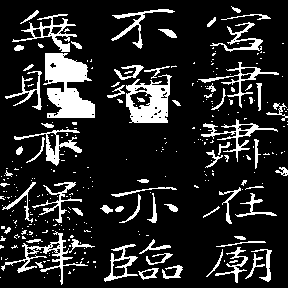 宮肅肅在廟
不顯亦臨
無射亦保肆